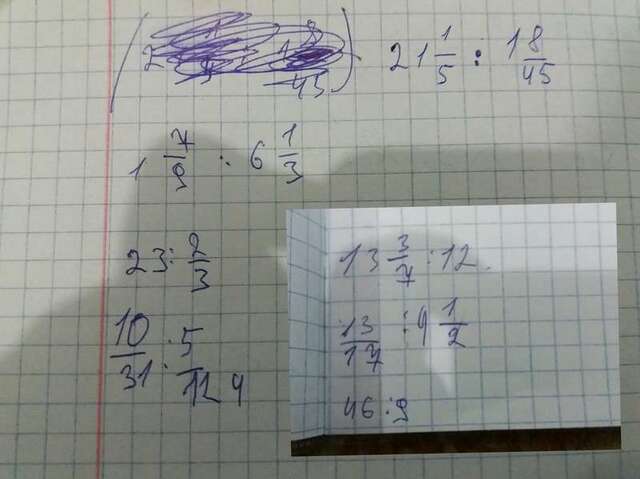 21 1/5 : 1 8/45
1 7/9 : 6 1/3
23 : 2/3
10/31 : 5/124
13 3/7 : 12
13/17 : 9 1/2
46 : 9